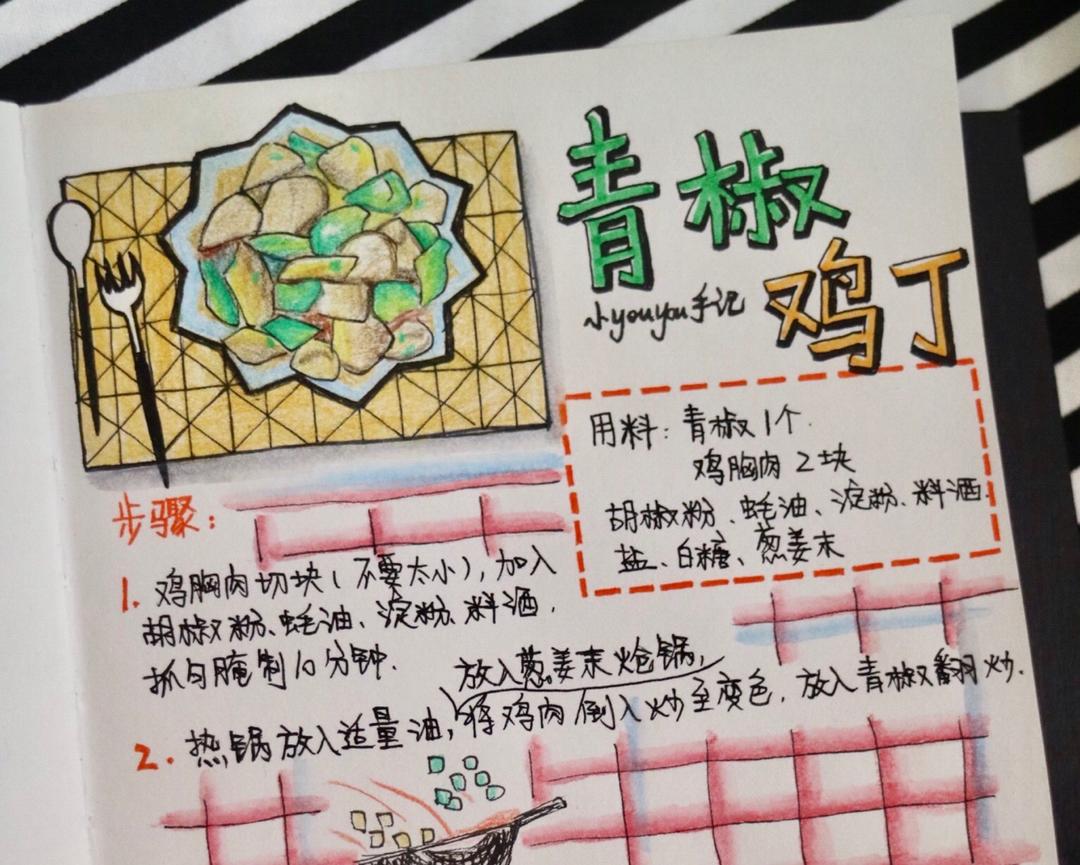 青椒
鸡丁
小youyou手记
用料：青椒1个
鸡胸肉2块
胡椒粉、蚝油、淀粉、料酒
盐、白糖、葱姜末
步骤：
1. 鸡胸肉切块(不要太小)，加入
胡椒粉、蚝油、淀粉、料酒，
抓匀腌制10分钟．
放入葱姜末炝锅，
2. 热锅放入适量油，将鸡肉倒入炒至变色，放入青椒翻炒．